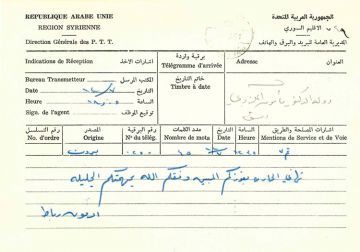 REPUBLIQUE ARABE UNIE
الجمهورية العربية المتحدة
REGION SYRIENNE
الاقليم السوري
Direction Générale des P. T. T.
المديرية العامة للبريد والبرق والهاتف
Indications de Réception
اشارات الاخذ
برقية واردة
Télégramme d'arrivée
Adresse
العنوان
Bureau Transmetteur
المكتب المرسل
خاتم التاريخ
Timbre à date
Date
التاريخ
Heure
الساعة
Sig. de l'agent
توقيع الموظف
رقم التسلسل
No. d'ordre
المصدر
Origine
رقم البرقية
Nº du télég.
عدد الكلمات
Nombre de mots
التاريخ
Date
الساعة
Heure
اشارات المصلحة والطريق
Mentions de Service et de Voie
بفوزكم المبين وفقكم الله بمهمتكم الجليله
ادمون رباط